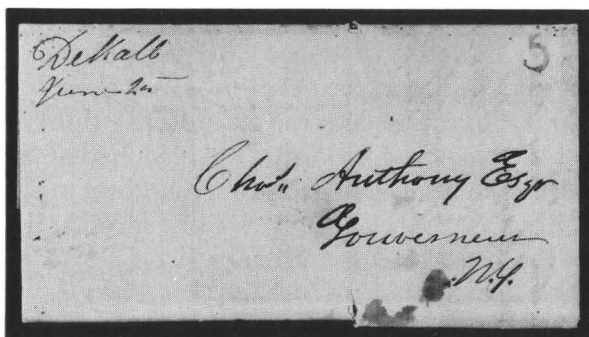 DeKalb
June 25
5
Chas. Anthony Esqr
Gouverneur
N.Y.